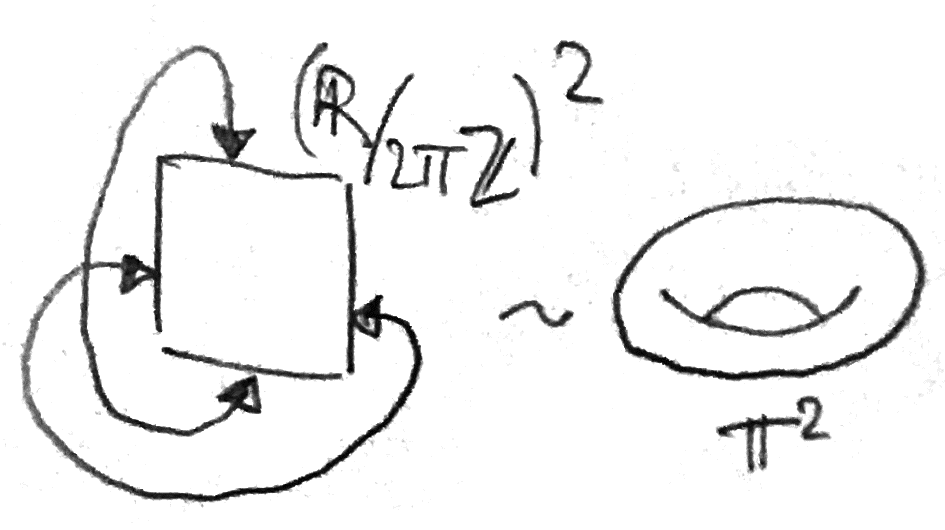 (ℝ/2πℤ)²
~
𝕋²